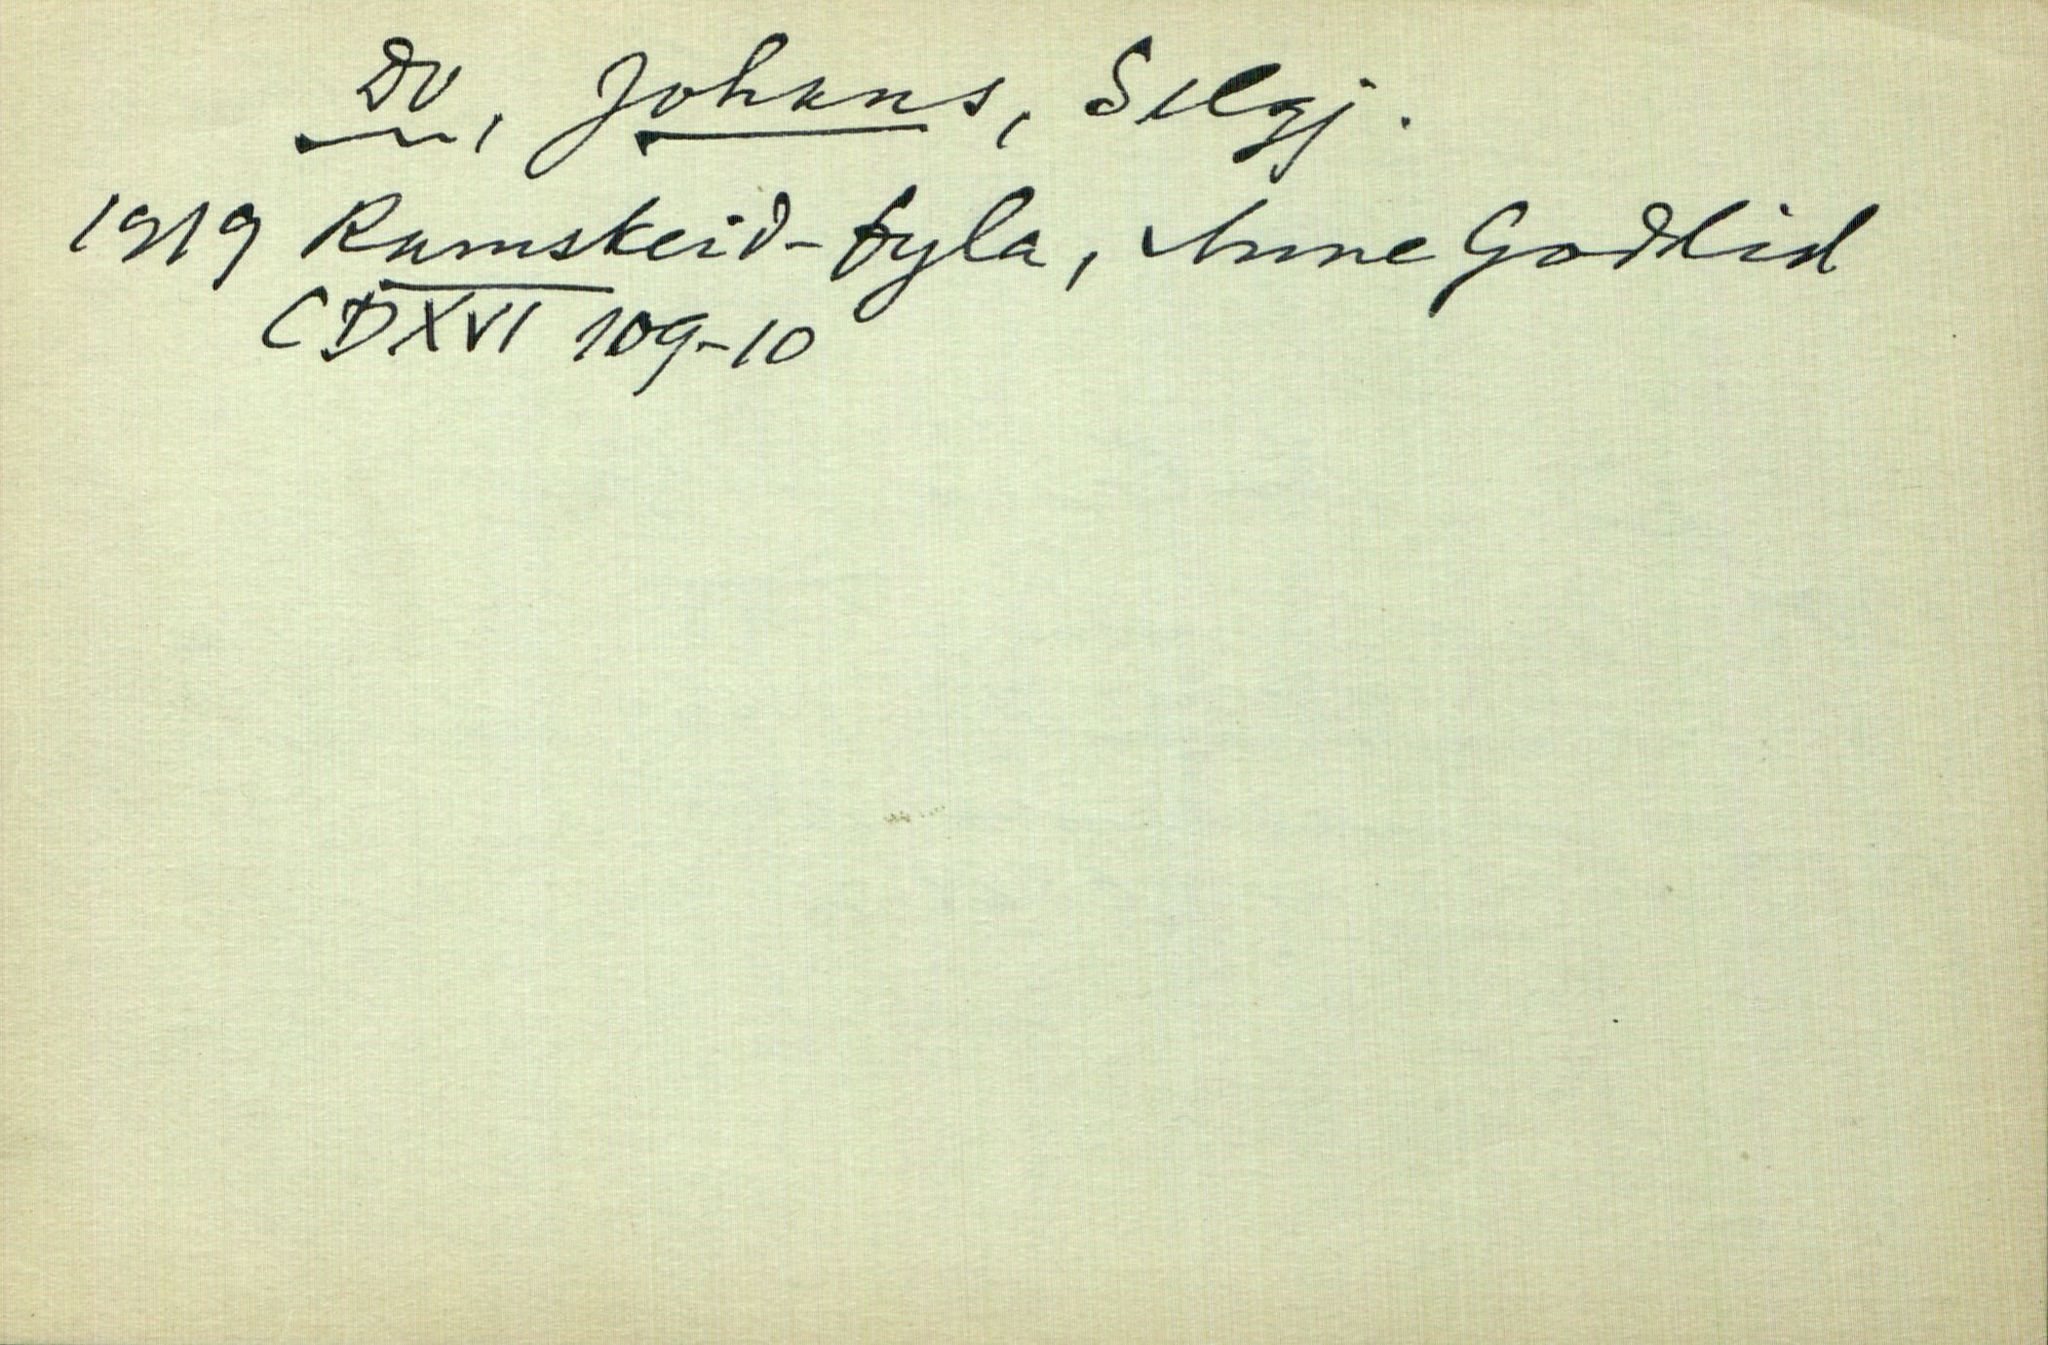 Dv, Johans, Selgj.
1919 Ramskeid-fyla, Anne Godlid
CDXVI 109-10